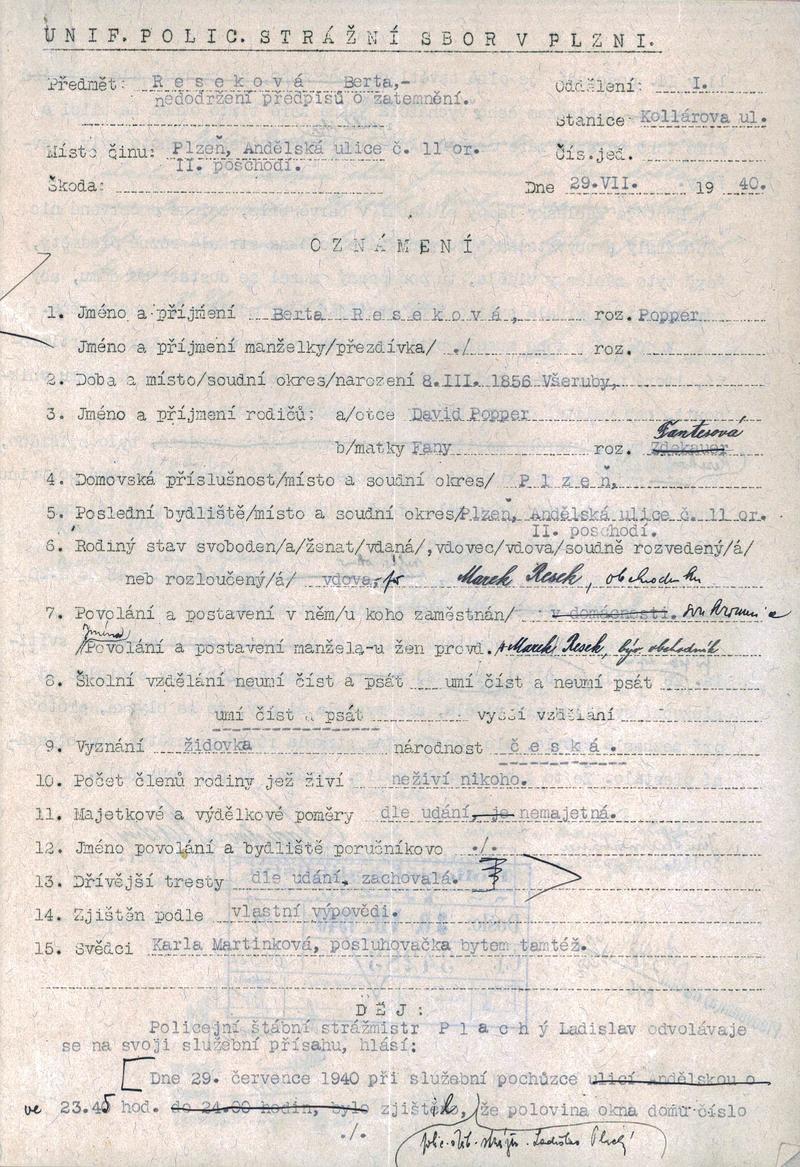 UNIF. POLIC. STRÁŽNÍ SBOR V PLZNI.
Předmět: Reseková Berta,-
nedodržení předpisů o zatemnění.
Oddělení: I.
Stanice Kollárova ul.
Místo činu: Plzeň, Andělská ulice č. 11 or.
II. poschodí.
Čís.jed.
Škoda:
Dne 29.VII. 19 40.
OZNÁMENÍ
1. Jméno a příjmení Berta Reseková, roz. Popper
Jméno a příjmení manželky/přezdívka/ ./ roz.
2. Doba a místo/soudní okres/narození 8.III. 1856 Všeruby,
3. Jméno a příjmení rodičů: a/otce David Popper
Fantesová
b/matky Fany roz. Zdekauer
4. Domovská příslušnost/místo a soudní okres/ Plzeň,
5. Poslední bydliště/místo a soudní okres/Plzeň, Andělská ulice č. 11 or.
II. poschodí.
6. Rodiný stav svoboden/a/ženat/vdaná/,vdovec/vdova/soudně rozvedený/á/
neb rozloučený/á/ vdova, po Marek Resek, obchodníku
7. Povolání a postavení v něm/u koho zaměstnán/ v domácnosti.
jméno
/Povolání a postavení manžela-u žen provd. Marek Resek, býv. obchodník
8. Školní vzdělání neumí číst a psát umí číst a neumí psát
umí číst a psát vyšší vzdělání
9. Vyznání židovka národnost česká.
10. Počet členů rodiny jež živí neživí nikoho.
11. Majetkové a výdělkové poměry dle udání, je nemajetná.
12. Jméno povolání a bydliště poručníkovo ./.
13. Dřívější tresty dle udání, zachovalá.
14. Zjištěn podle vlastní výpovědi.
15. Svědci Karla Martinková, posluhovačka bytem tamtéž.
DĚJ:
Policejní štábní strážmistr Plachý Ladislav odvolávaje
se na svoji služební přísahu, hlásí:
Dne 29. července 1940 při služební pochůzce ulicí Andělskou o
ve 23.45 hod. do 24.00 hodin, bylo zjištěno, že polovina okna domu číslo
./.
polic. štáb. strážm. Ladislav Plachý